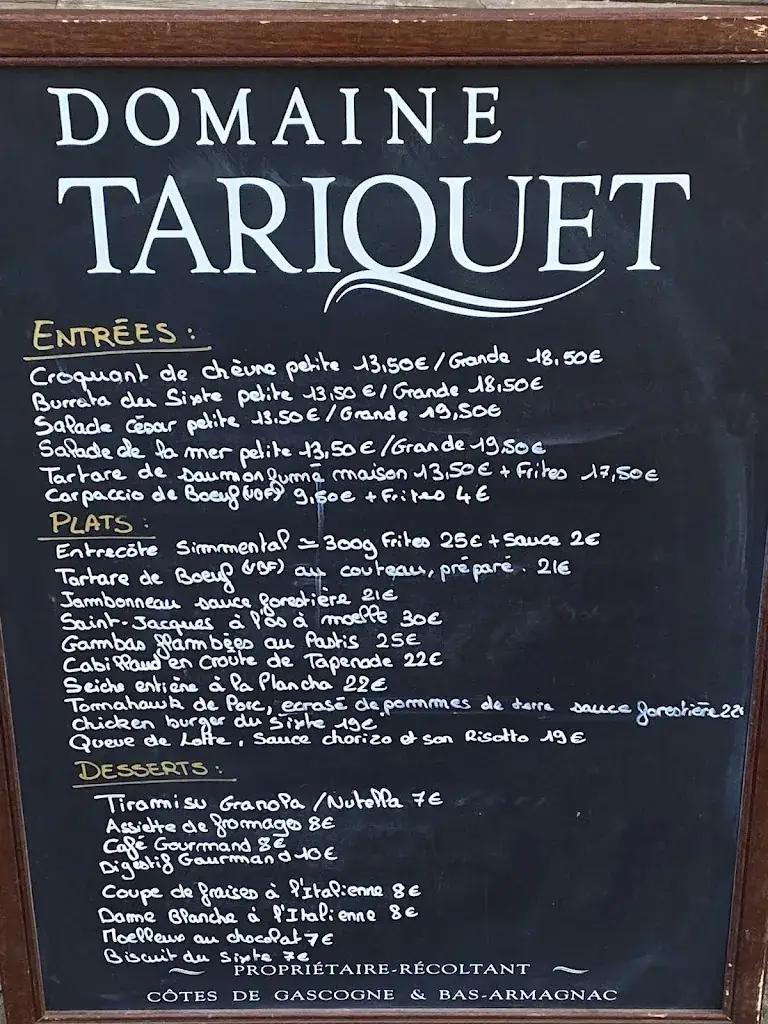 DOMAINE
TARIQUET
ENTRÉES :
Croquant de chèvre petite 13,50€ / Grande 18,50€
Burrata du Sixte petite 13,50 € / Grande 18,50€
Salade césar petite 13.50€ / Grande 19,50€
Salade de la mer petite 13,50 € / Grande 19,50€
Tartare de saumon fumé maison 13,50€ + Frites 17,50€
Carpaccio de Boeuf (VBF) 9,50€ + Frites 4€
PLATS :
Entrecôte Simmental ≃ 300g Frites 25€ + Sauce 2€
Tartare de Boeuf (VBF) au couteau, préparé. 21€
Jambonneau sauce forestière 21€
Saint-Jacques à l'os à moelle 30€
Gambas flambées au Pastis 25€
Cabillaud en croûte de Tapenade 22€
Seiche entière à la Plancha 22€
Tomahawk de Porc, ecrasé de pommes de terre sauce forestière 22€
Chicken burger du Sixte 19€
Queue de Lotte, Sauce chorizo et son Risotto 19€
DESSERTS :
Tiramisu Granola / Nutella 7€
Assiette de fromage 8€
Café Gourmand 8€
Digestif Gourmand 10€
Coupe de fraises à l'Italienne 8€
Dame Blanche à l'Italienne 8€
Moelleux au chocolat 7€
Biscuit du Sixte 7€
PROPRIÉTAIRE-RÉCOLTANT
CÔTES DE GASCOGNE & BAS-ARMAGNAC